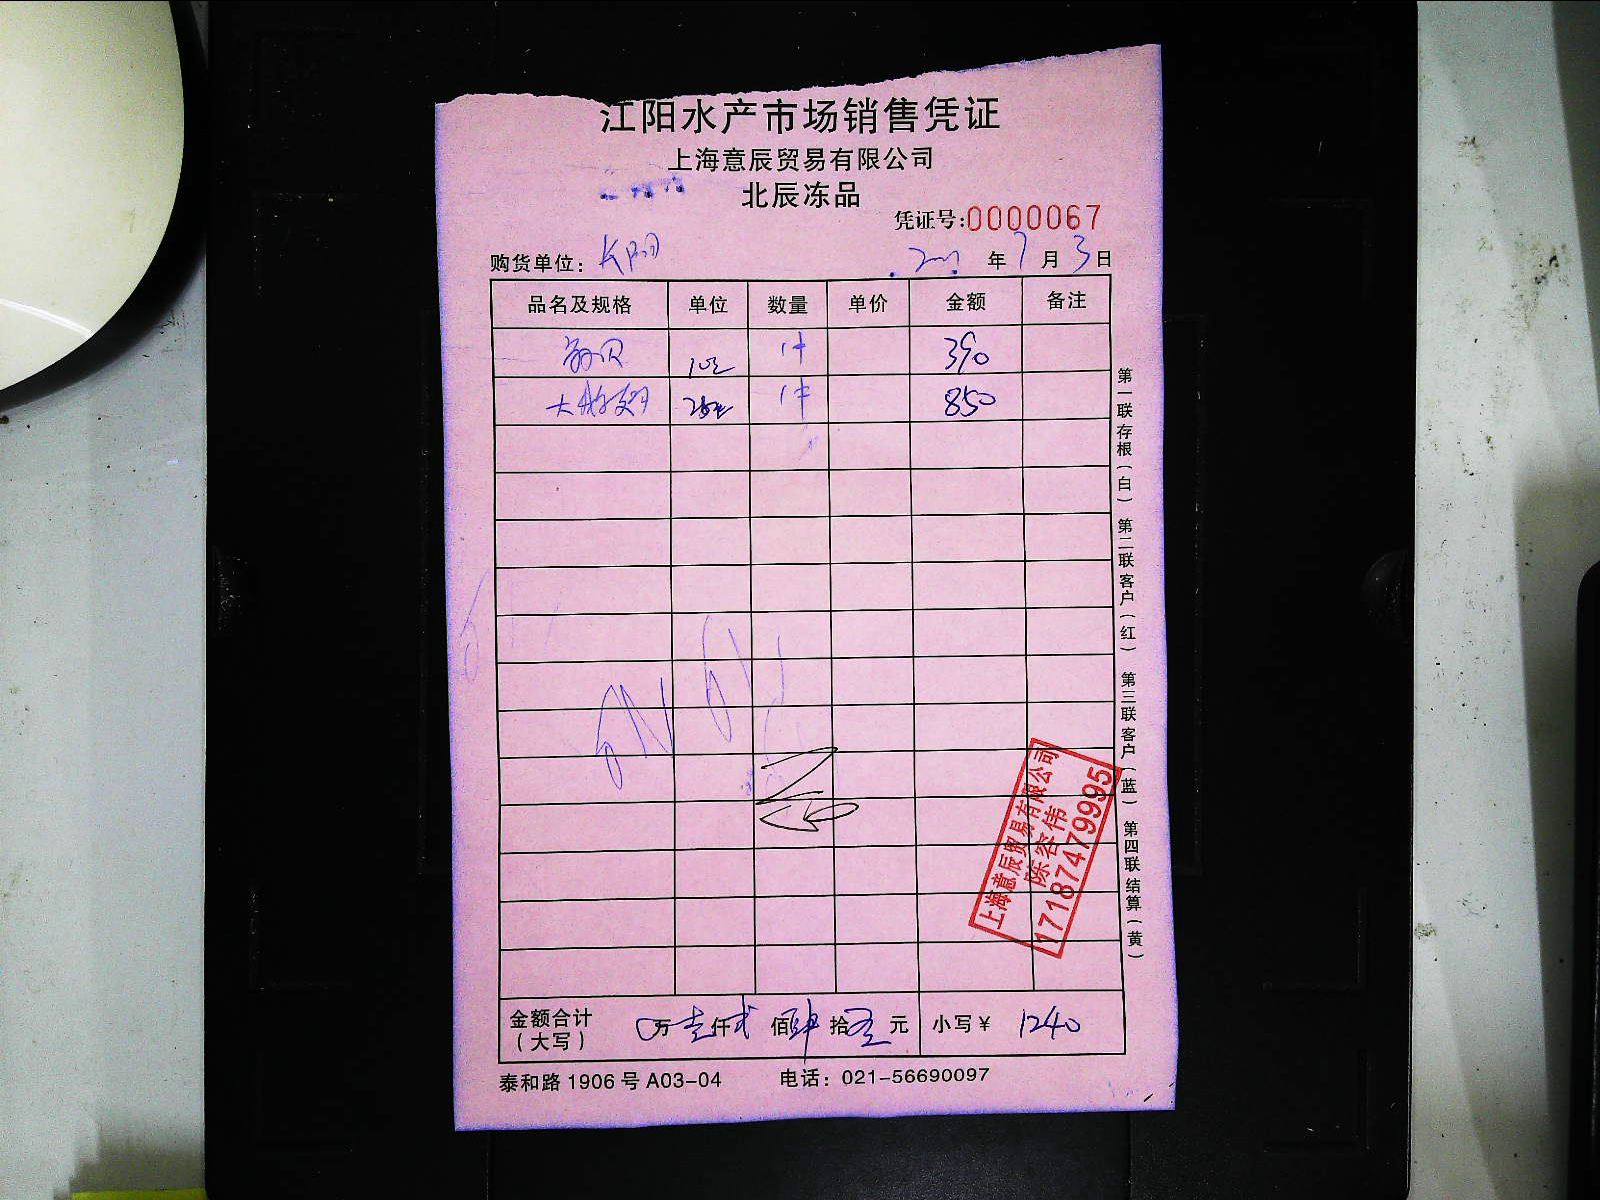 江阳水产市场销售凭证
上海意辰贸易有限公司
北辰冻品
凭证号:0000067
购货单位:
年 7 月 3 日
品名及规格 单位 数量 单价 金额 备注
1件 390
大 1件 850
第一联存根(白) 第二联客户(红) 第三联客户(蓝) 第四联结算(黄)
上海意辰贸易有限公司
陈容伟
17187479995
金额合计 0万壹仟贰佰肆拾元 小写¥ 1240
(大写)
泰和路1906号A03-04 电话:021-56690097